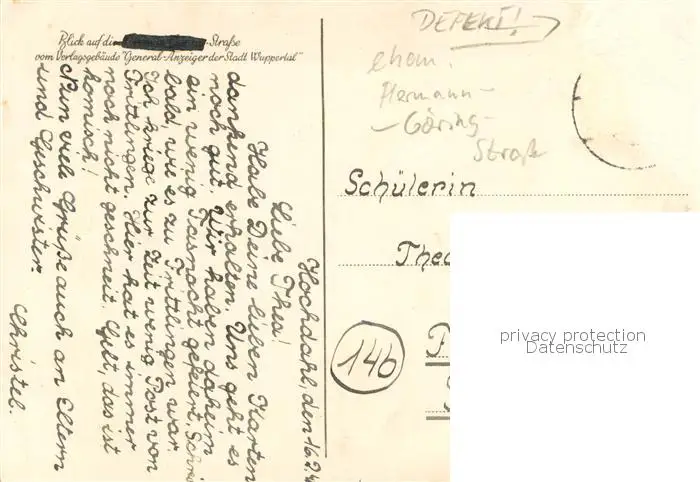 Blick auf die Straße
vom Verlagsgebäude "General-Anzeiger der Stadt Wuppertal"
Hochdahl, den 16.2.
Liebe Thea!
Habe Deine lieben Karten
dankend erhalten. Uns geht es
noch gut. Wir haben daheim
ein wenig Fasnacht gefeiert. Schrei
bald wie es zu Trittlingen war
Ich kriege zur Zeit wenig Post von
Trittlingen. Hier hat es immer
noch nicht geschneit. Gelt, das ist
komisch!
Nun viele Grüße auch an Eltern
und Geschwister.
Christel.
DEFEKT!
ehem.
Hermann-
Göring-
Straße
Schülerin
Thea
14b
privacy protection
Datenschutz